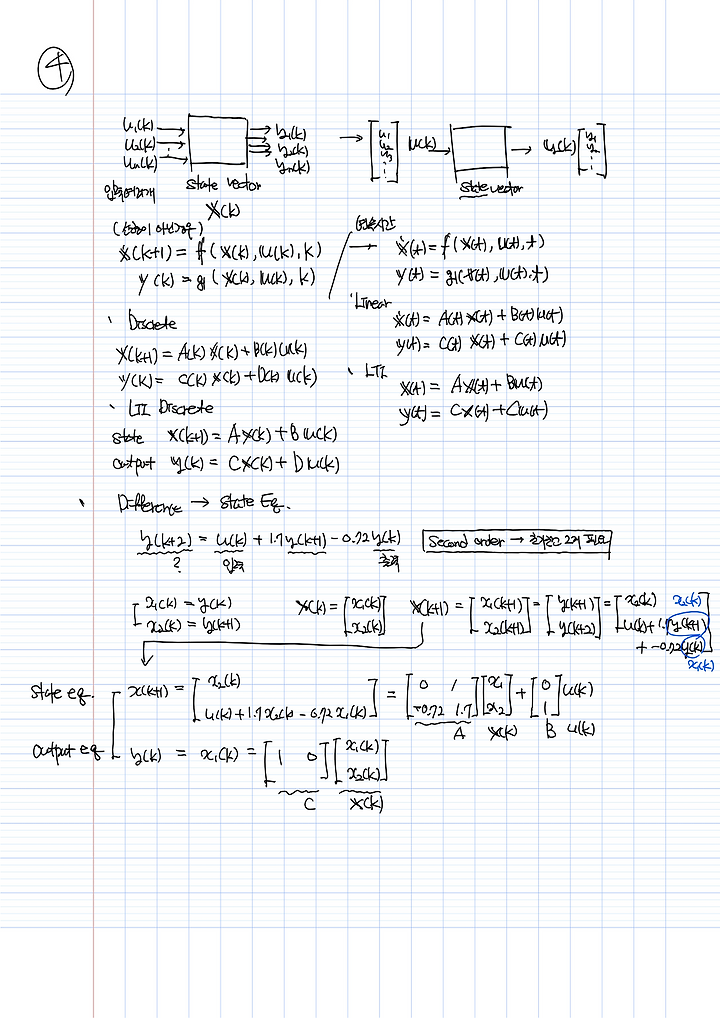 ④
u₁(k) → y₁(k) → [u₁ u₂ u₃ ⋮] u(k) → → y(k) [y₁ y₂ ⋮]
u₂(k) → y₂(k)
⋮
uₙ(k) → yₙ(k)
입력여러개 state vector state vector
x(k)
x(k+1) = f(x(k), u(k), k)
y(k) = g(x(k), u(k), k)
→ ẋ(t) = f(x(t), u(t), t)
y(t) = g(x(t), u(t), t)
Linear
ẋ(t) = A(t) x(t) + B(t) u(t)
y(t) = C(t) x(t) + C(t) u(t)
Discrete
x(k+1) = A(k) x(k) + B(k) u(k)
y(k) = C(k) x(k) + D(k) u(k)
LTI
x(t) = A x(t) + B u(t)
y(t) = C x(t) + C u(t)
LTI Discrete
state x(k+1) = A x(k) + B u(k)
output y(k) = C x(k) + D u(k)
Difference → State Eq.
y(k+2) = u(k) + 1.7y(k+1) - 0.72 y(k)
? 입력 출력
Second order → 초기조건 2개 필요
[ x₁(k) = y(k)
x₂(k) = y(k+1)
x(k) = [x₁(k) x₂(k)] x(k+1) = [x₁(k+1) x₂(k+1)] = [y(k+1) y(k+2)] = [x₂(k) u(k) + 1.7y(k+1) + -0.72y(k)]
x₂(k)
x₁(k)
State eq. x(k+1) = [x₂(k) u(k) + 1.7x₂(k) - 0.72 x₁(k)] = [0 1 -0.72 1.7] [x₁ x₂] + [0 1] u(k)
A x(k) B u(k)
Output eq y(k) = x₁(k) = [1 0] [x₁(k) x₂(k)]
C x(k)